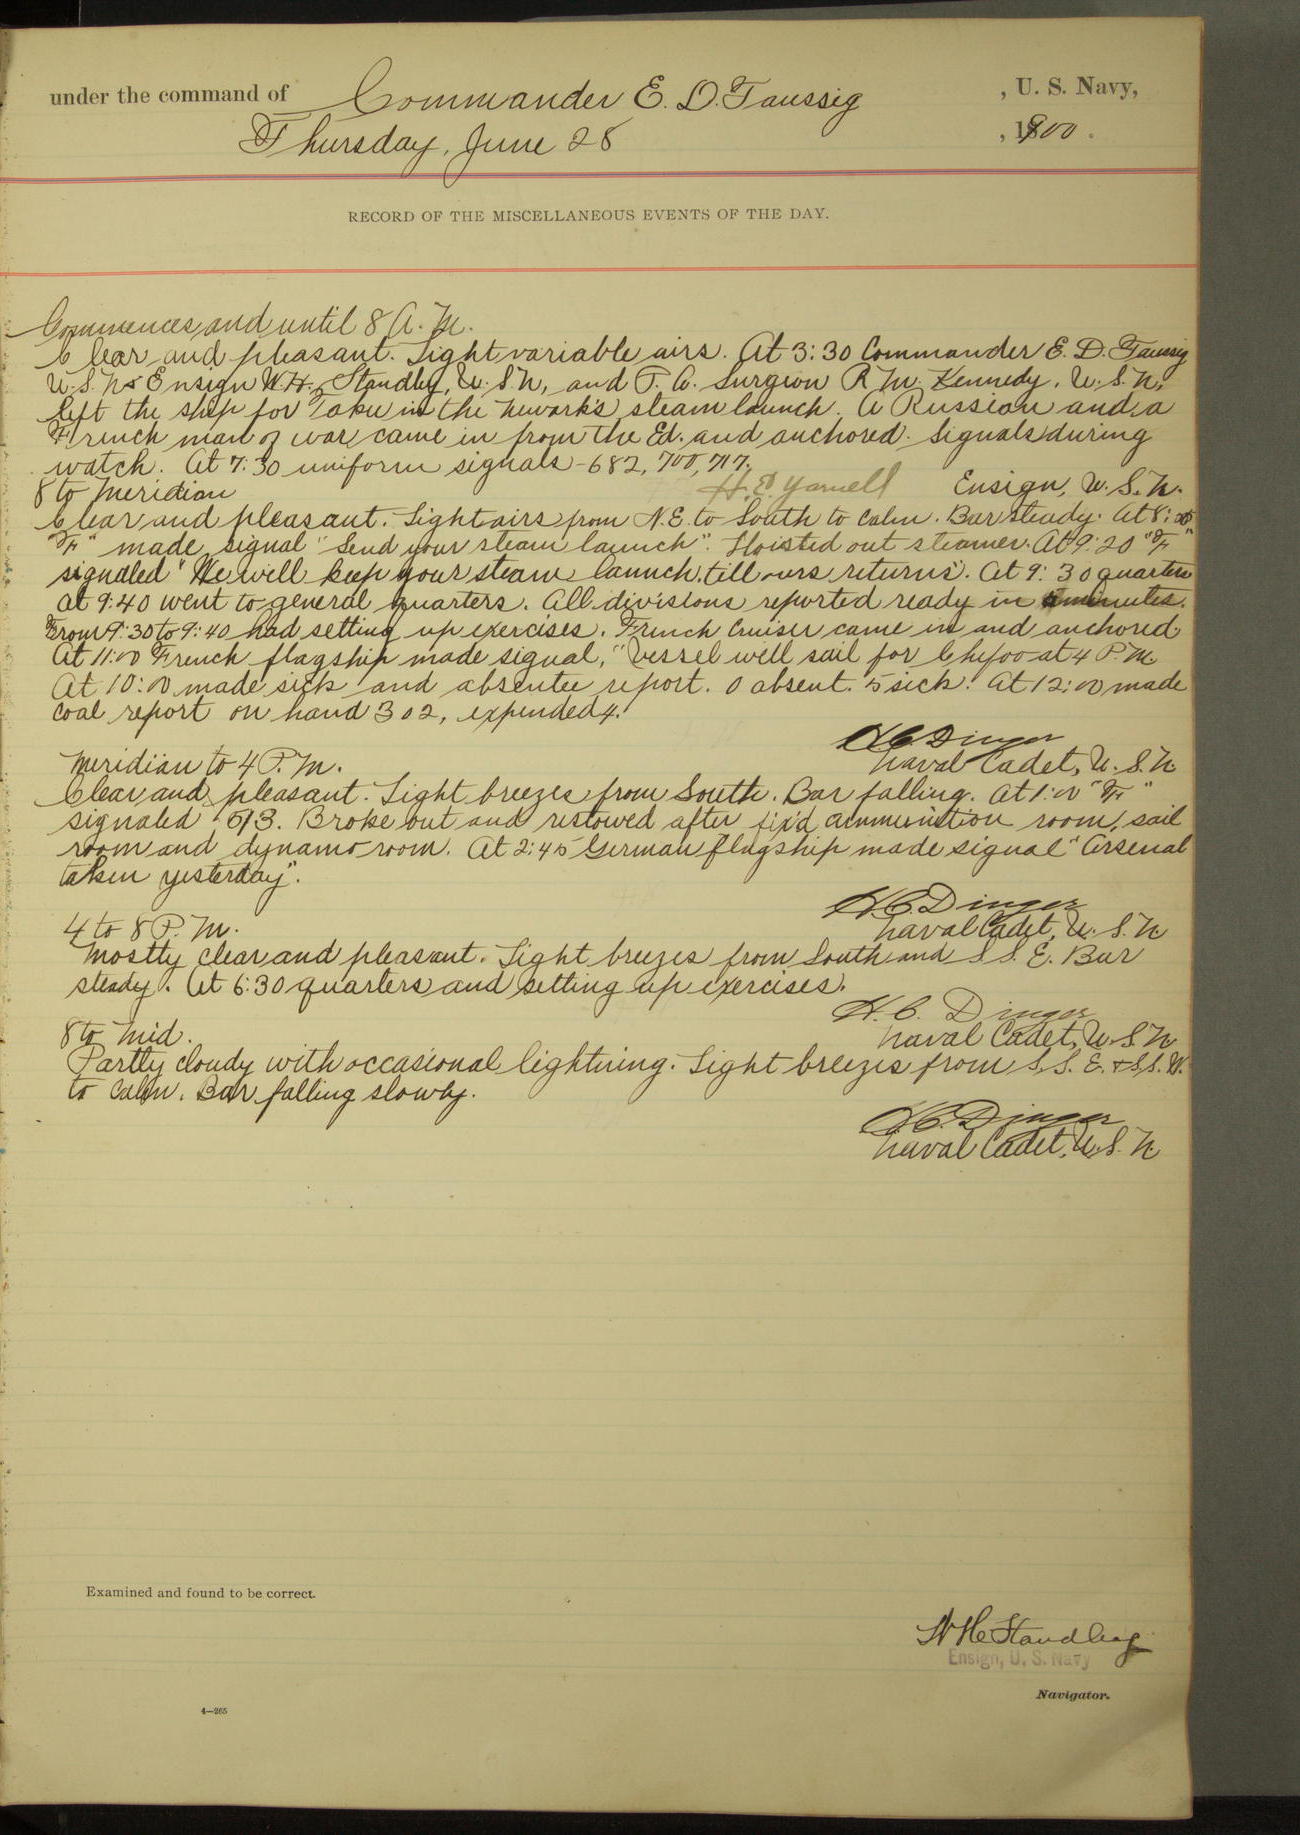 under the command of Commander E. D. Taussig , U. S. Navy,
Thursday, June 28 , 1900.
RECORD OF THE MISCELLANEOUS EVENTS OF THE DAY.
Commences and until 8 A. M.
Clear and pleasant. Light variable airs. At 3:30 Commander E. D. Taussig
U.S.N. Ensign W. H. Standley, U.S.N, and P. A. Surgeon R M. Kennedy, U.S.N.
left the ship for Taku in the Newark's steam launch. A Russian and a
French man of war came in from the Ed. and anchored. Signals during
watch. At 7:30 uniform signals - 682, 700, 717.
H. E. Yarnell Ensign, U.S.N.
8 to Meridian
Clear and pleasant. Light airs from N.E. to South to calm. Bar steady. At 8:20
"F" made signal "Send your steam launch". Hoisted out steamer. At 9:20 "F"
signaled "We will keep your steam launch till ours returns". At 9:30 quarters
at 9:40 went to general quarters. All divisions reported ready in minutes.
From 9:30 to 9:40 had setting up exercises. French Cruiser came in and anchored
At 11:00 French flagship made signal, "Vessel will sail for Chefoo at 4 P.M.
At 10:00 made sick and absentee report. 0 absent. 5 sick. At 12:00 made
coal report on hand 302, expended 4.
H C Dinger
Naval Cadet, U.S.N
Meridian to 4 P.M.
Clear and pleasant. Light breezes from South. Bar falling. At 1:00 "F"
signaled 513. Broke out and restowed after fix'd ammunition room, sail
room and dynamo room. At 2:45 German flagship made signal "Arsenal
taken yesterday".
H. C. Dinger
Naval Cadet, U.S.N
4 to 8 P.M.
Mostly clear and pleasant. Light breezes from South and S S.E. Bar
steady. At 6:30 quarters and setting up exercises.
H. C. Dinger
Naval Cadet, U.S.N
8 to Mid.
Partly cloudy with occasional lightning. Light breezes from S.S.E. & S.S.W.
to calm. Bar falling slowly.
H C. Dinger
Naval Cadet, U.S.N.
Examined and found to be correct.
W H Standley
Ensign, U. S. Navy
Navigator.
4—265